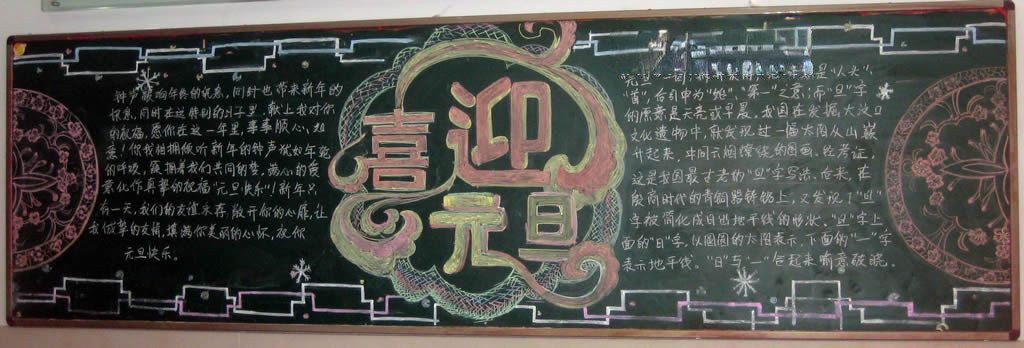 钟声敲响年终的讯息，同时也带来新年的
讯息，同时在这特别的日子里，献上我对你
的祝福，愿你在这一年里，事事顺心，如
意！你我相拥倾听新年的钟声犹如年轮
的呼吸，簇拥着我们共同的梦，满心的爱
意化作真挚的祝福“元旦快乐”！新年只
有一天，我们的友谊永存，敞开你的心扉，让
我做挚的友情，填满你美丽的心怀，祝你
元旦快乐。
喜迎
元旦
“元旦”一词，
是“人头”，
“首”，后引申为“始”、“第一”之意；而“旦”字
的原意是天亮或早晨。我国在发掘大汶口
文化遗物中，就发现过一幅太阳从山巅
升起来，中间云烟缭绕的图画。经考证，
这是我国最古老的“旦”字写法。后来，在
殷商时代的青铜器铸铭上，又发现了“旦”
字被简化成日出地平线的形状。“旦”字上
面的“日”字，以圆圆的太阳表示，下面的“一”字
表示地平线。“日”与“一”合起来喻意破晓。